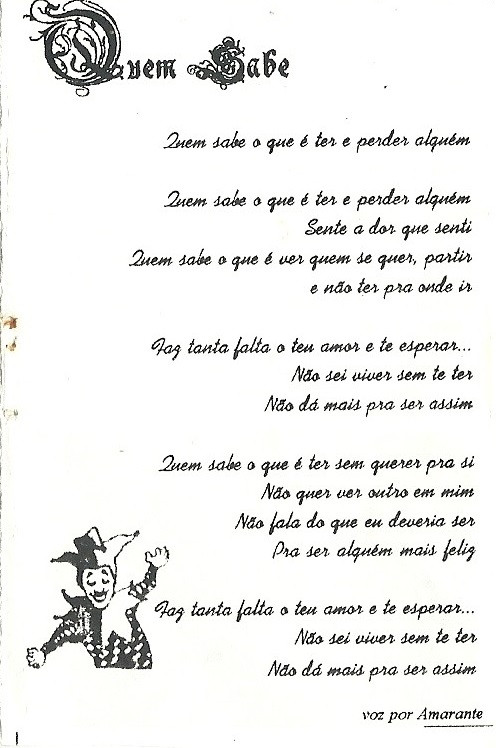 Quem Sabe
Quem sabe o que é ter e perder alguém
Quem sabe o que é ter e perder alguém
Sente a dor que senti
Quem sabe o que é ver quem se quer, partir
e não ter pra onde ir
Faz tanta falta o teu amor e te esperar...
Não sei viver sem te ter
Não dá mais pra ser assim
Quem sabe o que é ter sem querer pra si
Não quer ver outro em mim
Não fala do que eu deveria ser
Pra ser alguém mais feliz
Faz tanta falta o teu amor e te esperar...
Não sei viver sem te ter
Não dá mais pra ser assim
voz por Amarante